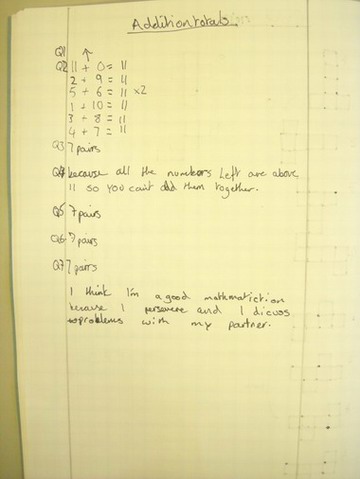 Addition totals.
Q1 ↑
Q2 11 + 0 = 11
2 + 9 = 11
5 + 6 = 11 x2
1 + 10 = 11
3 + 8 = 11
4 + 7 = 11
Q3 7 pairs
Q4 because all the numbers left are above
11 so you can't did them together.
Q5 7 pairs
Q6 7 pairs
Q7 7 pairs
I think I'm a good mathmatiction
because I persevere and I dicuss
problems with my partner.